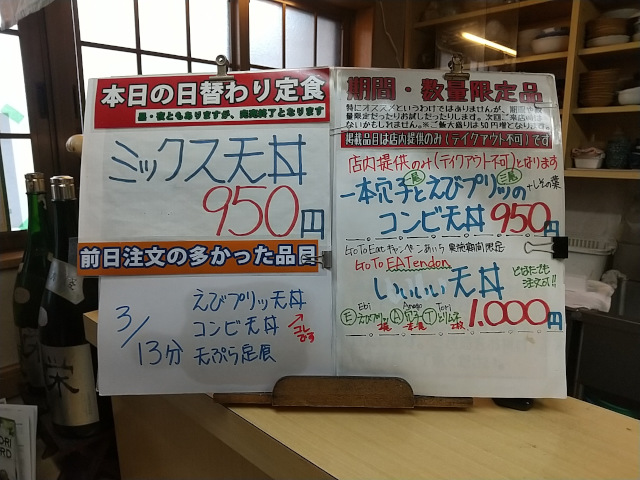 本日の日替わり定食
昼・夜ともありますが、完売終了となります
ミックス天丼
950円
前日注文の多かった品目
3/13分
えびプリッ天丼
コンビ天丼
天ぷら定食
コレです
期間・数量限定品
特にオススメというわけではありませんが、期間や
量限定だったりお試しだったりします。次回ご来店時は
ないかもしれません。※ご飯大盛りは50円増となります
掲載品目は店内提供のみ(テイクアウト不可)です
店内提供のみ(テイクアウト不可)となります
一本穴子とえびプリッの
一尾
三尾
+しその葉
コンビ天丼 950円
Go To Eat キャンペーンあいち
Go To EATendon
いいいい天丼
どなたでも
注文可!!
Ebi Anago Tori
Eえびプリッ A穴子 Tとりムネ
1.000円